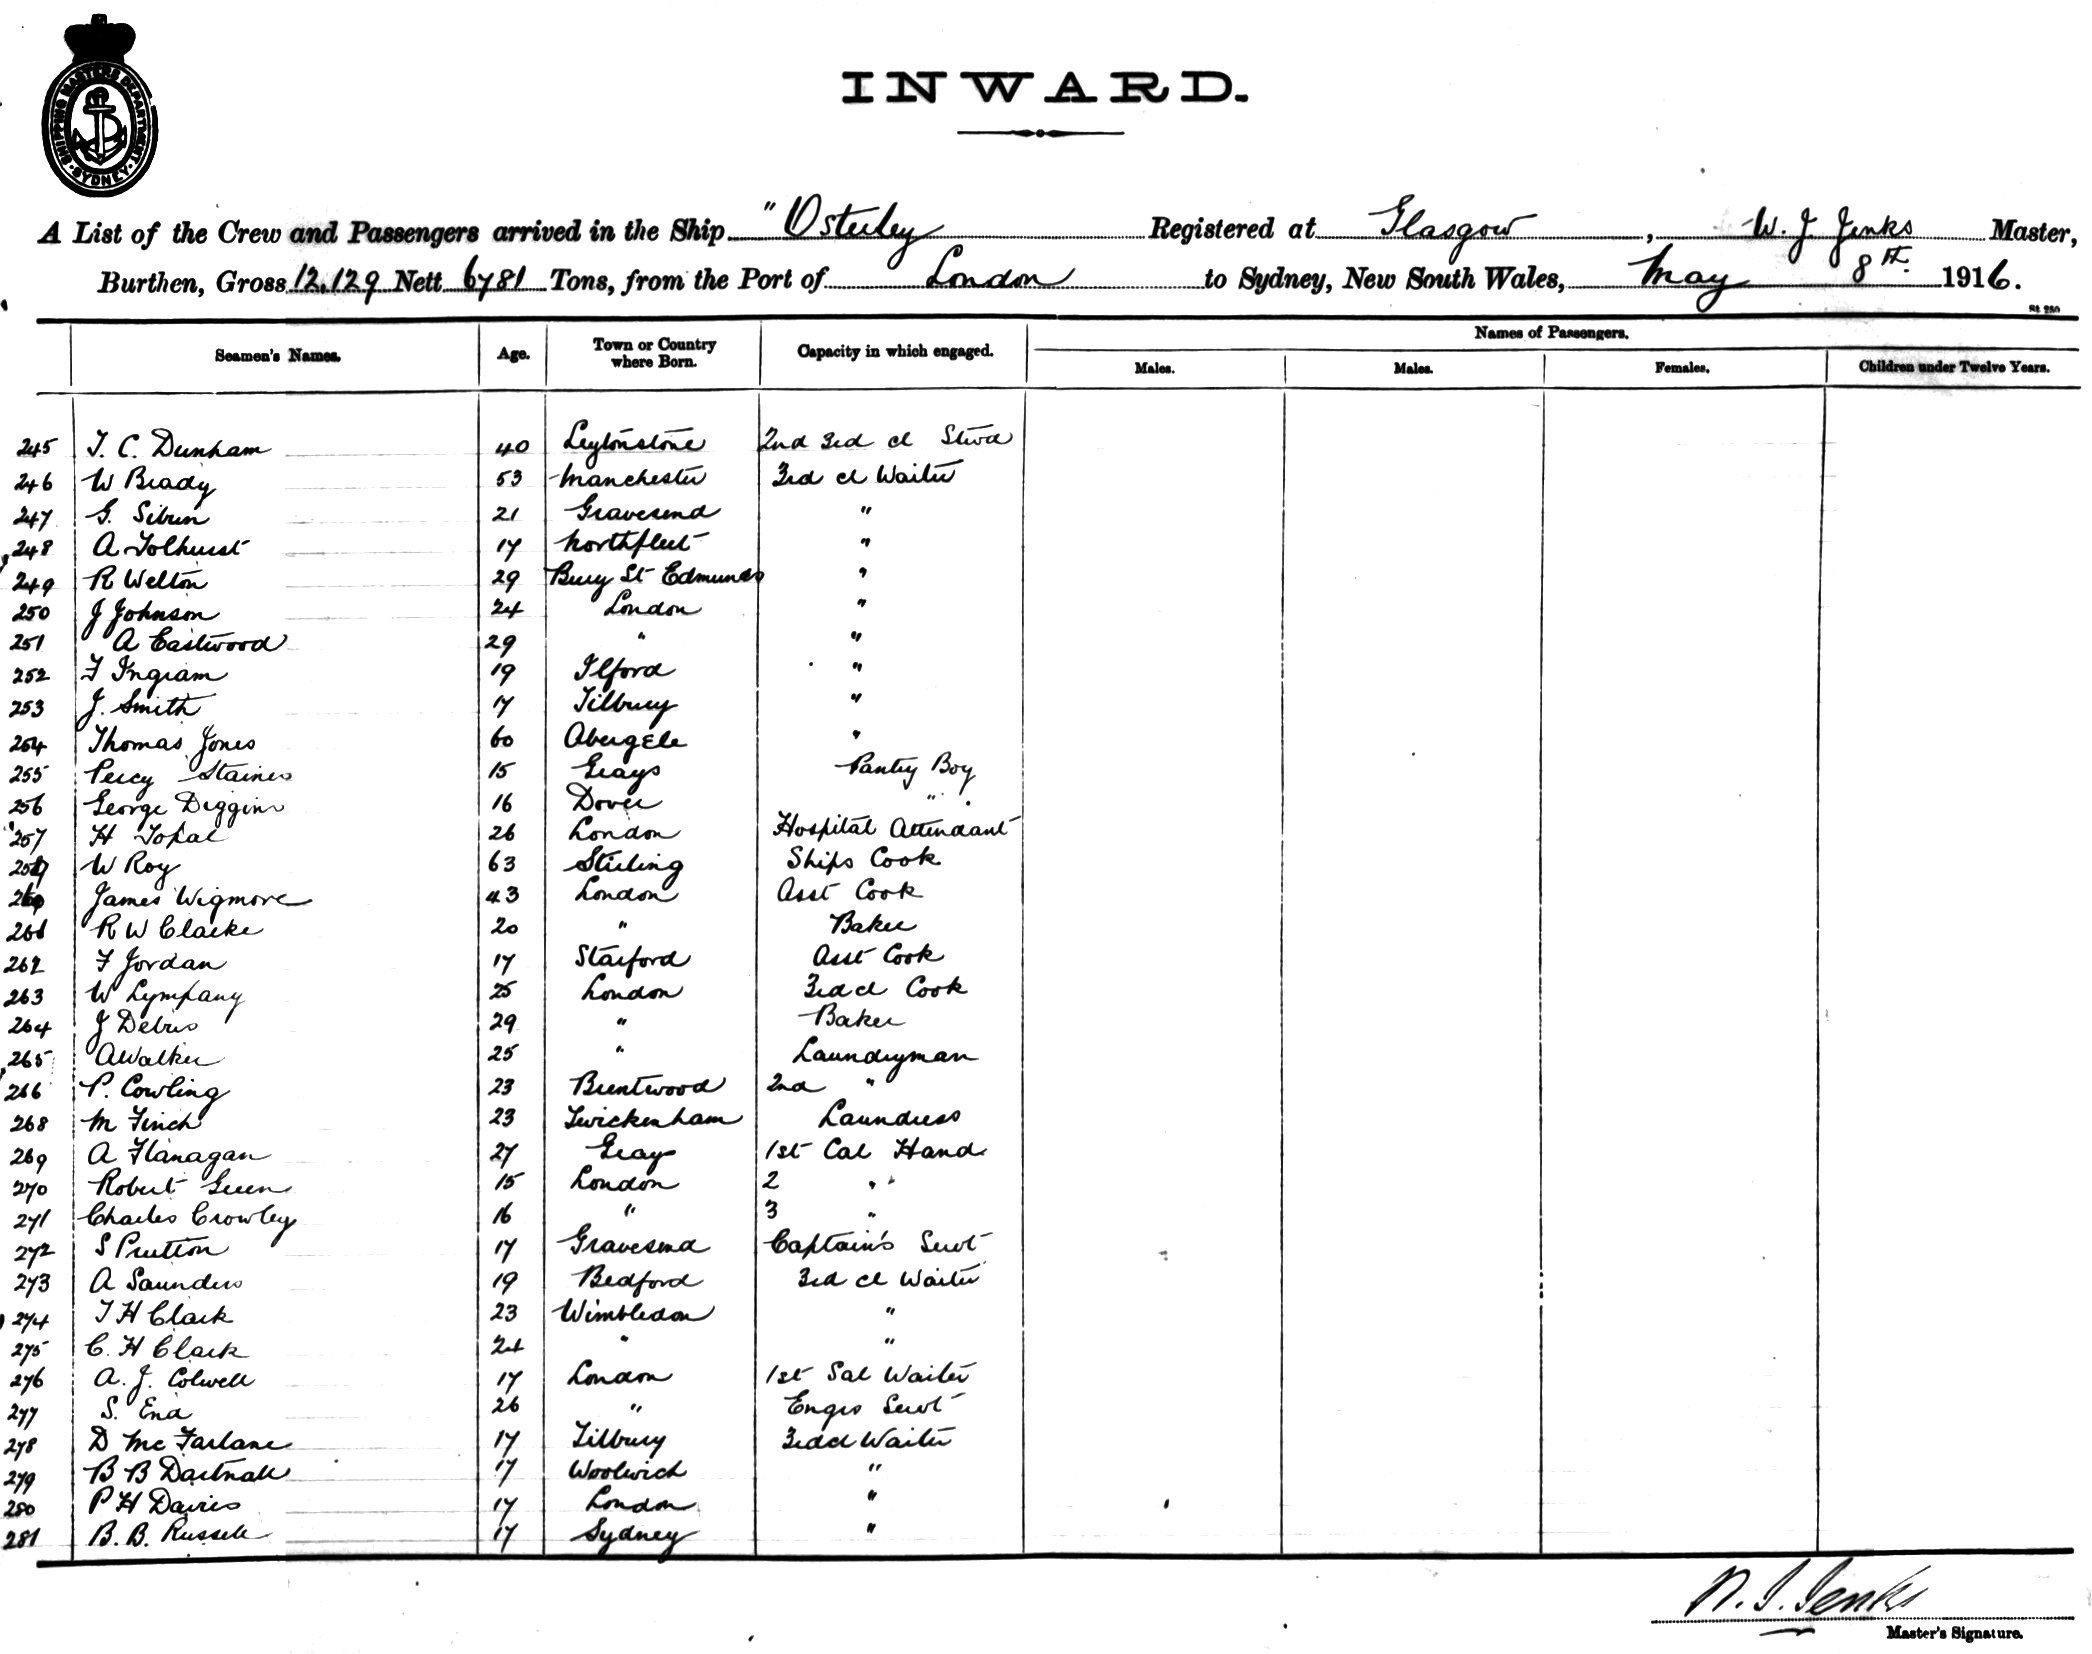 SHIPPING MASTERS DEPARTMENT
SYDNEY
INWARD.
A List of the Crew and Passengers arrived in the Ship "Osterley Registered at Glasgow, W. J. Jenks Master,
Burthen, Gross 12,129 Nett 6781 Tons, from the Port of London to Sydney, New South Wales, May 8th 1916.
Names of Passengers.
Seamen's Names. Age. Town or Country where Born. Capacity in which engaged. Males. Males. Females. Children under Twelve Years.
245 T. C. Dunham 40 Leytonstone 2nd 3rd cl Stwd
246 W Brady 53 Manchester 3rd cl Waiter
247 G. Sibun 21 Gravesend "
248 A Tolhurst 17 Northfleet "
249 R Welton 29 Bury St Edmunds "
250 J Johnson 24 London "
251 A Eastwood 29 " "
252 F Ingram 19 Ilford "
253 J. Smith 17 Tilbury "
254 Thomas Jones 60 Abergele "
255 Percy Staines 15 Grays Pantry Boy
256 George Diggins 16 Dover "
257 H Topal 26 London Hospital Attendant
259 W Roy 63 Stirling Ships Cook
260 James Wigmore 43 London Asst Cook
261 R W Clarke 20 " Baker
262 F Jordan 17 Starford Asst Cook
263 W Lympany 25 London 3rd cl Cook
264 J Debris 29 " Baker
265 A Walker 25 " Laundryman
266 P. Cowling 23 Brentwood 2nd "
268 M Finch 23 Twickenham Laundress
269 A Flanagan 27 Grays 1st Cal Hand
270 Robert Green 15 London 2 "
271 Charles Crowley 16 " 3 "
272 S Prutton 17 Gravesend Captain's Servt
273 A Saunders 19 Bedford 3rd cl Waiter
274 T H Clark 23 Wimbledon "
275 C. H Clark 24 " "
276 A. J. Colwell 17 London 1st Sal Waiter
277 S. End 26 " Engrs Servt
278 D McFarlane 17 Tilbury 3rd cl Waiter
279 B B Dartnall 17 Woolwich "
280 P H Davies 17 London "
281 B. B. Russell 17 Sydney "
W. J. Jenks
Master's Signature.